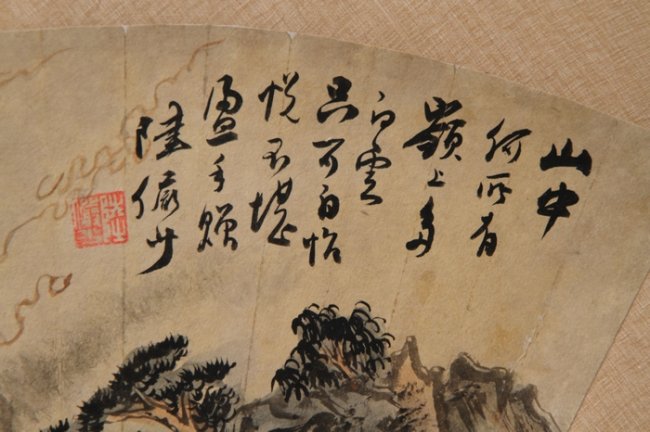 山中
何所有
嶺上多
白雲
只可自怡
悦不堪
盈手贈
陸儼少